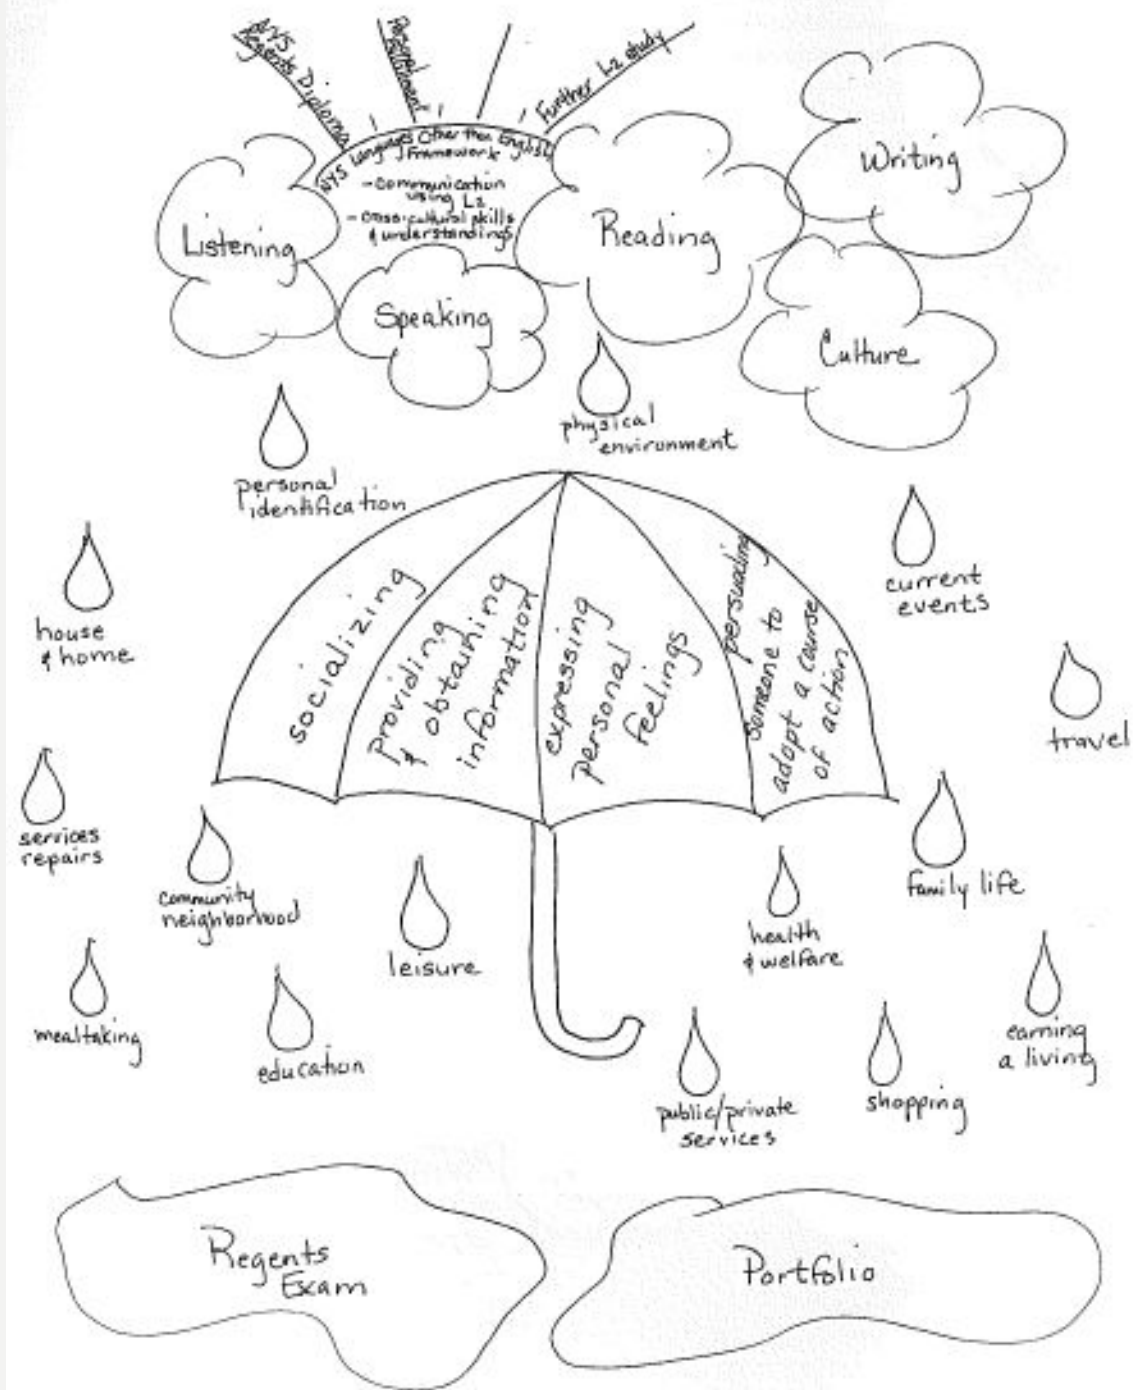 NYS
Regents Diploma
Personal
Fulfillment
Further L2 study
NYS Languages Other than English
Framework
- communication
using L2
- cross-cultural skills
& understandings
Listening
Speaking
Reading
Writing
Culture
physical
environment
personal
identification
current
events
house
& home
travel
socializing
providing
& obtaining
information
expressing
personal
feelings
persuading
someone to
adopt a course
of action
services
repairs
community
neighborhood
leisure
health
& welfare
family life
mealtaking
education
public/private
services
shopping
earning
a living
Regents
Exam
Portfolio